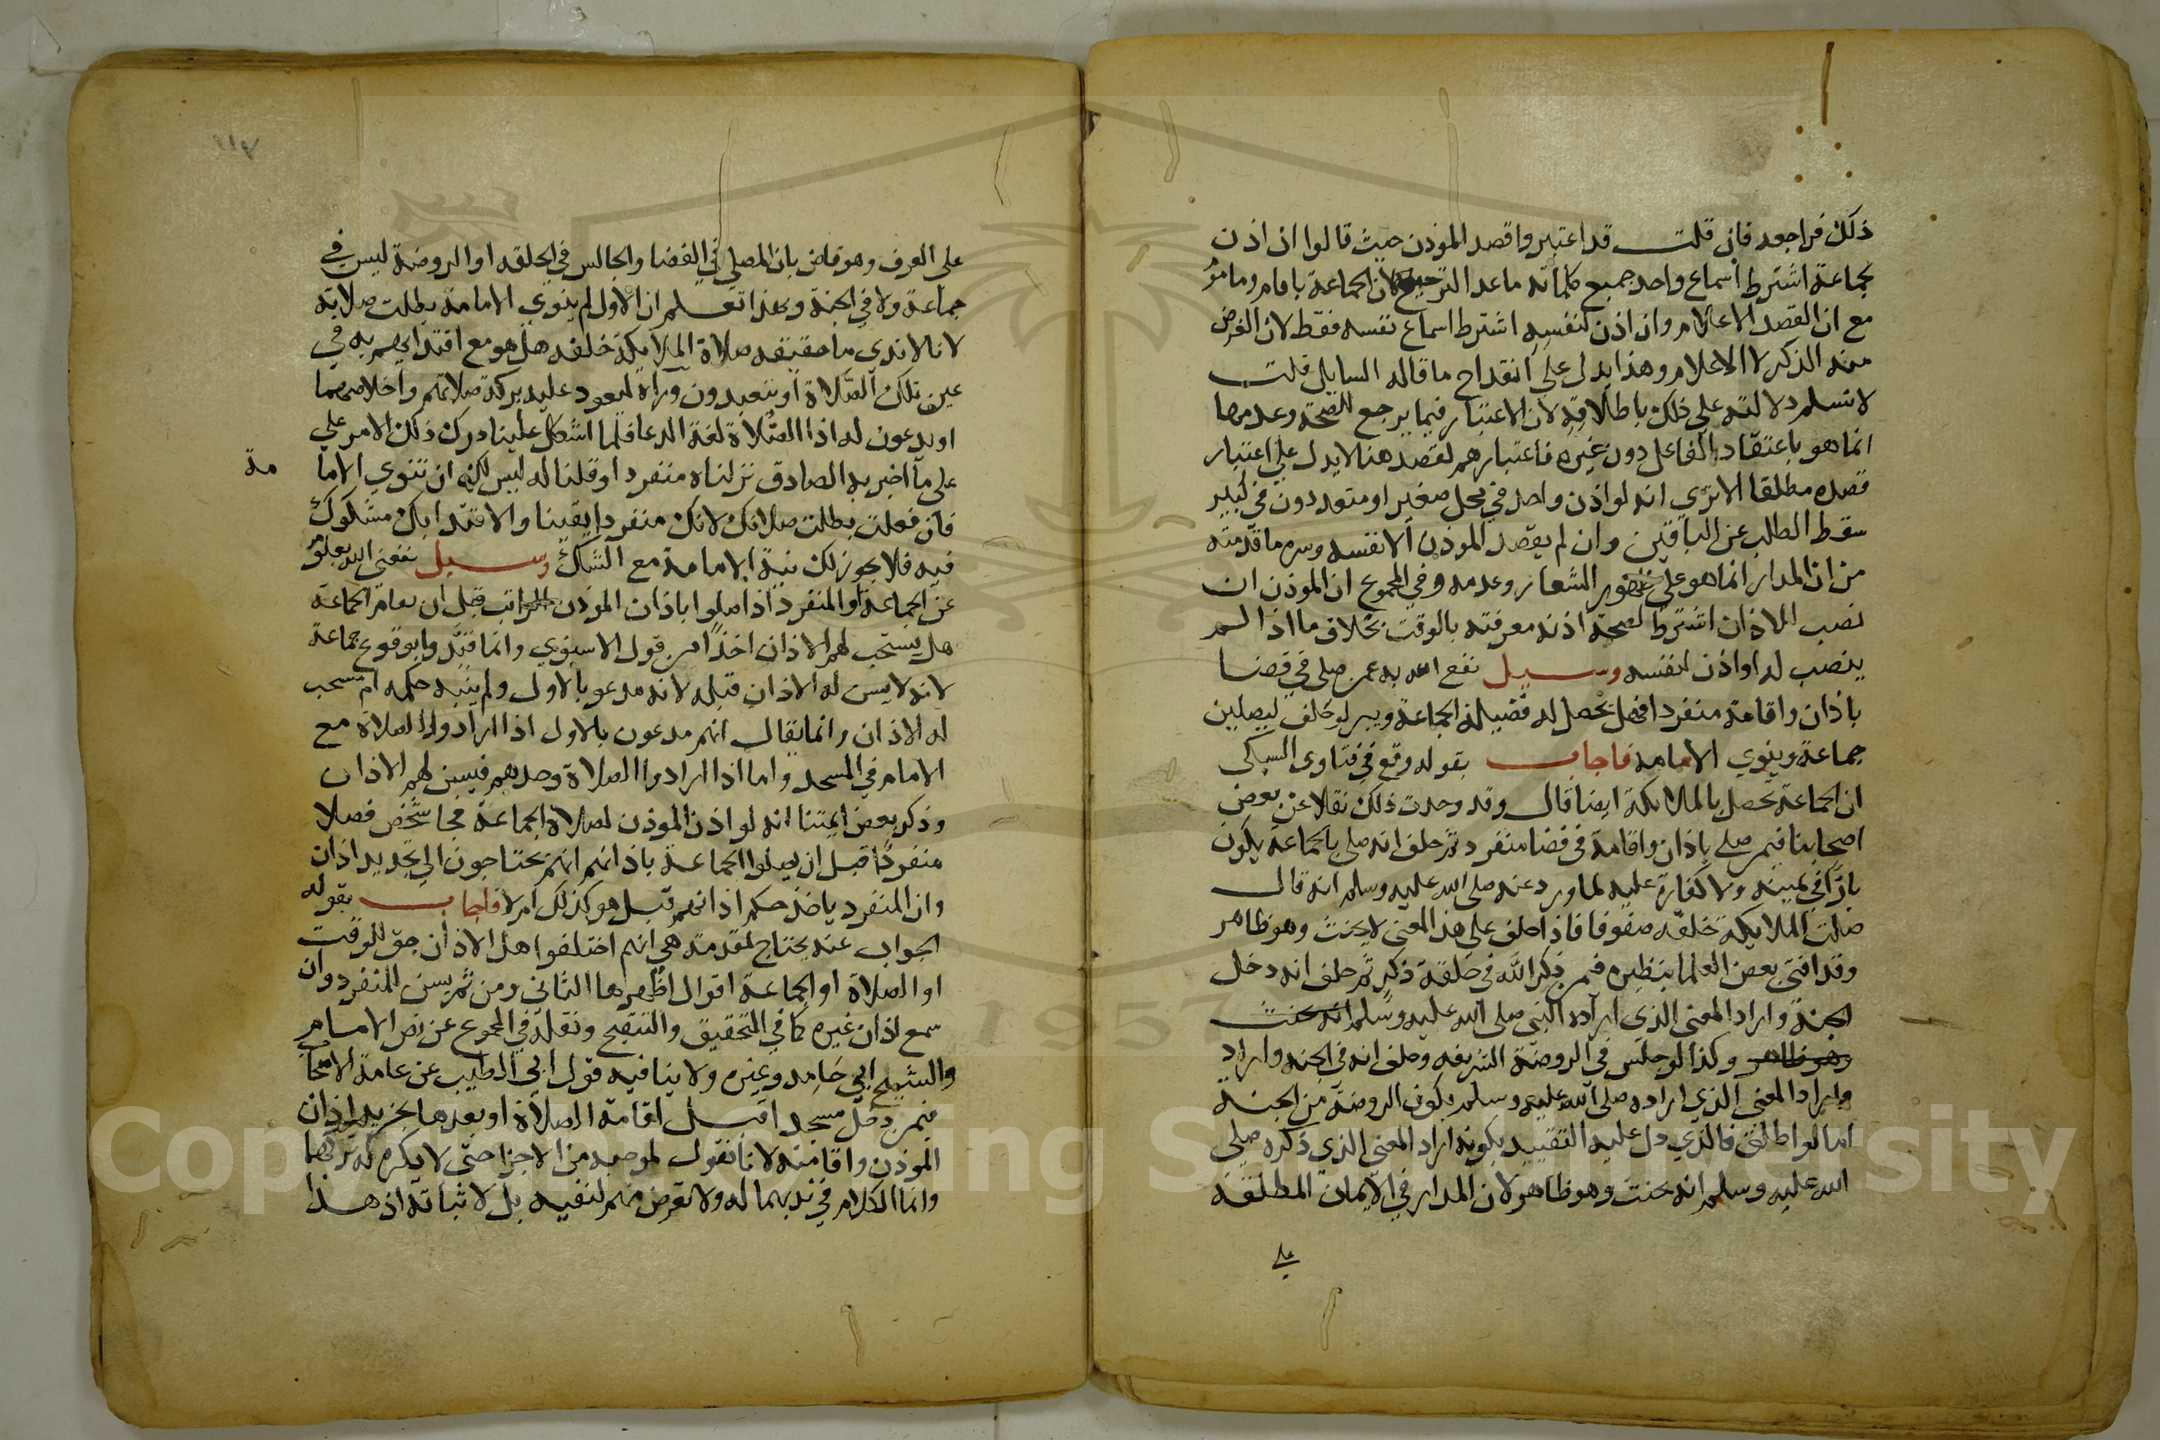 ذلك فراجعه فان قلت قد اعتبروا قصد الموذن حيث قالوا ان اذن
لجماعة اشترط اسماع واحد جميع كلماته ماعدا الترجيع لان الجماعة بامام ومامو
مع ان القصد الاعلام وان اذن لنفسه اشترط اسماع نفسه فقط لان الغرض
منه الذكر لا الاعلام وهذا يدل على انقداح ما قاله السايل قلت
لا نسلم دلالته على ذلك باطلاقه لان الاعتبار فيما يرجع للصحة وعدمها
انما هو باعتقاد الفاعل دون غيره فاعتبارهم لقصد هنا لا يدل على اعتبار
قصده مطلقا الا تري انه لو اذن واحد في محل صغير او متعددون في كبير
سقط الطلب عن الباقين وان لم يقصد الموذن الا نفسه وسره ما قدمته
من ان المدار انما هو على ظهور الشعار وعدمه وفي المجموع ان الموذن ان
نصب للاذان اشترط لصحة اذنه معرفته بالوقت بخلاف ما اذا لم
ينصب له او اذن لنفسه وسيل نفع الله به عمن صلى في فضا
باذان واقامة منفردا فهل يحصل له فضيلة الجماعة ويبر لو حلف ليصلين
جماعة وينوي الامامة فاجاب بقوله وقع في فتاوى السبكى
ان الجماعة تحصل بالملايكة ايضا قال وقد وجدت ذلك نقلا عن بعض
اصحابنا فيمن صلى باذان واقامة في فضا منفرد ثم حلف انه صلى بالجماعة يكون
بارّا في يمينه ولا كفارة عليه لما ورد عنه صلى الله عليه وسلم انه قال
صلت الملايكة خلفه صفوفا فاذا حلف على هذا المعنى لا يحنث وهو ظاهر
وقد افتى بعض العلما بنظيره فيمن ذكر الله في حلقة ذكر ثم حلف انه دخل
الجنة واراد المعنى الذي اراده النبي صلى الله عليه وسلم انه يحنث
وهو ظاهر وكذا لو جلس في الروضة الشريفه وحلف انه في الجنه واراد
واراد المعنى الذي اراده صلى الله عليه وسلم بكون الروضة من الجنة
اما لو اطلق فالذي دل عليه التقييد بكونه اراد المعنى الذي ذكره صلى
الله عليه وسلم انه يحنث وهو ظاهر لان المدار في الايمان المطلقة
على
١١٧
على العرف وهو قاض بان المصلي في الفضا والجالس في الحلقه او الروضة ليس في
جماعة ولا في الجنة وبهذا تعلم ان الاول لم ينوي الامامة بطلت صلاته
لانا لا ندري ما حقيقه صلاة الملايكة خلفه هل هو مع اقتدايهم به في
عين تلك الصلاة او يتعبدون وراه ليعود عليه بركة صلاتهم واخلاصهما
او يدعون له اذا الصلاة لغة الدعا فلما اشكل علينا درك ذلك الامر علي
على ما اخبر به الصادق نزلناه منفردا وقلنا له ليس لك ان تنوي الاما
مة
فان فعلت بطلت صلاتك لانك منفردا يقينا والاقتدا بك مشكوك
فيه فلا يجوز لك نية الامامة مع الشك وسيل نفعني الله بعلومه
عن الجماعة او المنفرد اذا صلوا باذان الموذن الراتب قبل ان تقام الجماعة
هل يستحب لهم الاذان اخذا من قول الاسنوي وانما قيّدوا بوقوع جماعة
لانه لا يسن له الاذان قبله لانه مدعو بالاول ولم ينبه حكمه ام يستحب
له الاذان وانما يقال انهم مدعون بالاول اذا ارادوا الصلاة مع
الامام في المسجد واما اذا ارادوا الصلاة وحدهم فيسن لهم الاذان
وذكر بعض ايمتنا انه لو اذن الموذن لصلاة الجماعة فجا شخص فصلا
منفردًا قبل ان يصلوا الجماعة باذانهم انهم يحتاجون الى تجديد اذان
وان المنفرد ياخذ حكم اذانهم قبل هو كذلك ام لا فاجاب بقوله
الجواب عنه يحتاج لمقدمة هي انهم اختلفوا هل الاذان حق للوقت
او الصلاة او الجماعة اقوال اظهرها الثاني ومن ثم يسن للمنفرد وان
سمع اذان غيره كما في التحقيق والتنقيح ونقله في المجموع عن نص الامام
والشيخ ابي حامد وغيره ولا ينافيه قول ابي الطيب عن عامة الاصحا
فيمن دخل مسجد اقبل اقامة الصلاة او بعدها يجزيه اذان
الموذن واقامته لانا نقول لموجبه من الاجزا حتى لا يكره له تركهما
وانما الكلام في ندبهما له ولا تعرض منهم لنفيه بل لاثباته اذ هذا
Copyright © King Saud University
1957